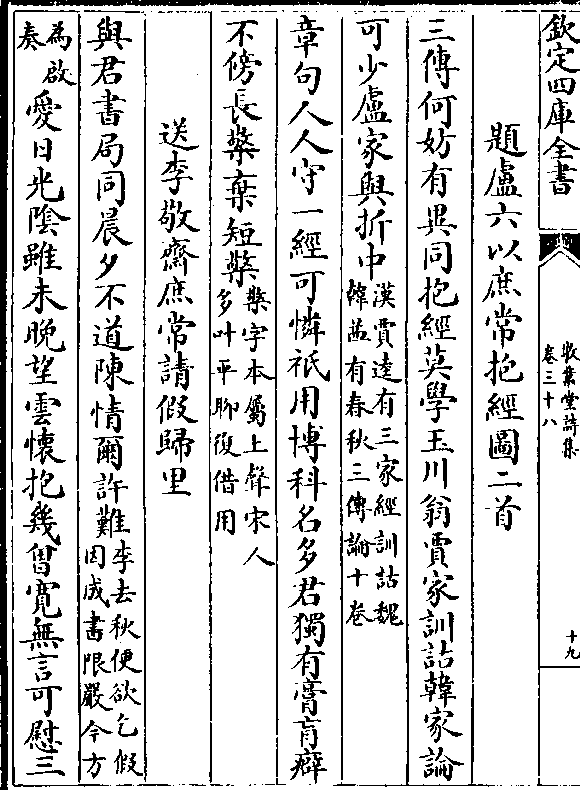 欽定四庫全書
敬業堂詩集
卷三十八
十九
題盧六以庶常抱經圖二首
三傳何妨有異同抱經莫學玉川翁賈家訓詁韓家論
可少盧家與折中漢賈逵有三家經訓詁魏
韓益有春秋三傳論十卷
章句人人守一經可憐祇用博科名多君獨有膏肓癖
不傍長檠棄短檠檠字本屬上聲宋人
多叶平聊復借用
送李敬齋庶常請假歸里
與君書局同晨夕不道陳情爾許難李去秋便欲乞假
因成書限嚴今方
為啟
奏愛日光陰雖未晚望雲懷抱幾曾寬無言可慰三